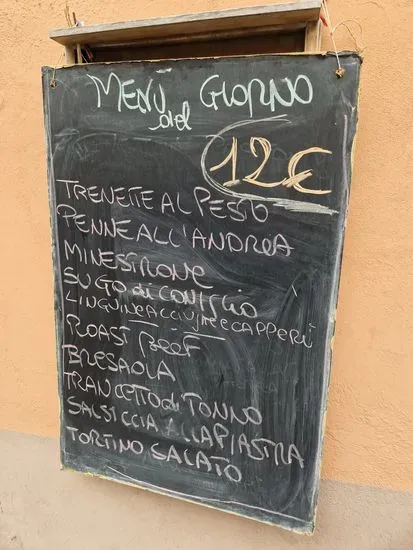 MENÙ del GIORNO
12€
TRENETE AL PESTO
PENNE ALL'ANDREA
MINESTRONE
SUGO di CONIGLIO
LINGUINE ACCIUGHE E CAPPERI
ROAST BEEF
BRESAOLA
TRANCETTO di TONNO
SALSICCIA ALLA PIASTRA
TORTINO SALATO